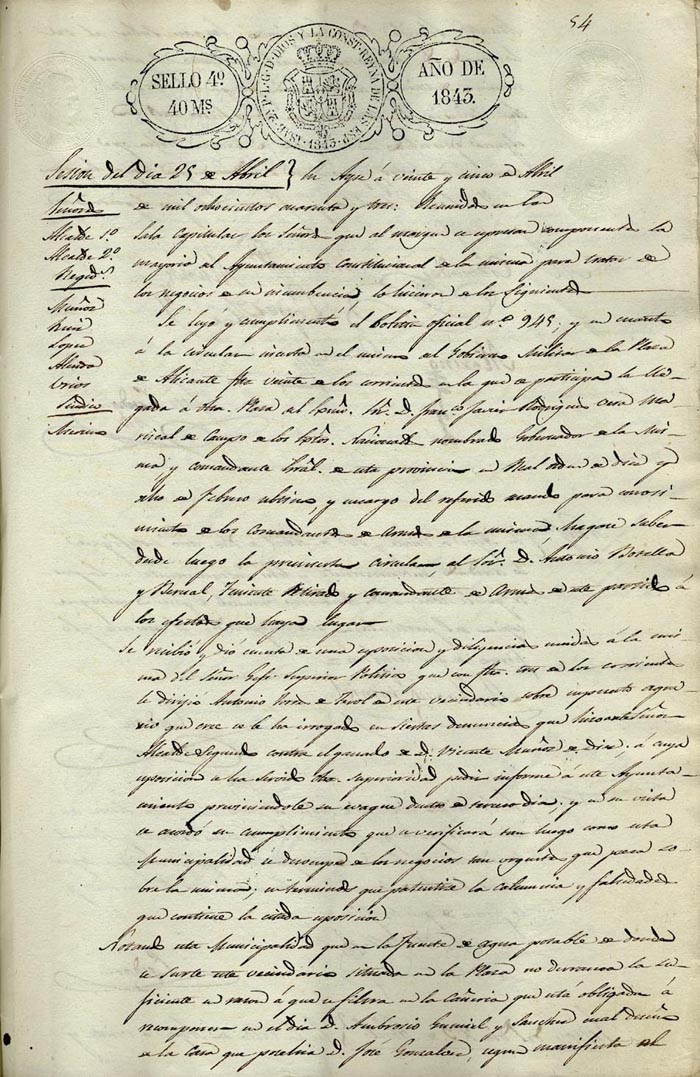 54
SELLO 4º
40 Ms
ISAB. 2ª P. L. G. D. DIOS Y LA CONST. REYNA DE LAS ESP. 1843.
AÑO DE
1843.
Sesion del dia 25 de Abril } En Aspe á veinte y cinco de Abril
Señores
Alcalde 1º
Alcalde 2º
Regid.s
Muñoz
Ruiz
Lopez
Almodo
Urios
Sindico
de mil ochocientos cuarenta y tres: Reunidos en la
Sala Capitular los Señores que al margen se espresan componentes la
mayoria del Ayuntamiento Constitucional de la misma para tratar de
los negocios de su incumbencia, lo hicieron de los siguientes
Se leyó y cumplimentó el boletin oficial nº 945; y en cuanto
á la circular inserta en el mismo del Gobierno Militar de la Plaza
de Alicante fha veinte de los corrientes en la que se participa la lle-
gada á dha. Plaza del Exmo. Sor. D. Franco Javier Rodriguez Ma-
riscal de Campo de los Egtos. Nacionales nombrado Gobernador de la Mis-
ma, y comandante Gral. de esta provincia en Real orden de diez y
ocho de Febrero ultimo, y encargo del referido mando para conosi-
miento de los comandantes de Armas de la misma; Hagase saber
desde luego la preinserta circular, al Sor. D. Antonio Botella
y Bernal, Teniente Retirado y comandante de Armas de este partido á
los efectos que haya lugar
Se recibió y dió cuenta de una esposicion y diligencias unida á la mis-
ma del Señor Gefe Superior Politico que con fha. tres de los corrientes
le dirijió Antonio de este vecindario sobre supuesto agra-
vio que cree se le ha irrogado en siertas denuncias que hizo este Señor
Alcalde Segundo contra el ganado de D. Vicente Muñoz de Diez, á cuya
esposicion se ha servido dha. superioridad pedir informe á este Ayunta-
miento previniendole su evaque dentro de tercero dia; y en su vista
se acordó su cumplimiento que se verificará tan luego como esta
Municipalidad se desocupe de los negocios tan urgentes que pesan so-
bre la misma; en terminos que patentice la calumnia y falsedades
que contiene la citada esposicion
Notando esta Municipalidad que en la Fuente de agua potable de donde
se surte este vecindario situada en la Plaza no derrama la su-
ficiente en razon á que se filtra en la Cañeria que está obligado á
recomponer en el dia D. Ambrosio Gumiel y Sanchez actual dueño
de la Casa que poselia D. José Gonzalvez, segun manifiesta el